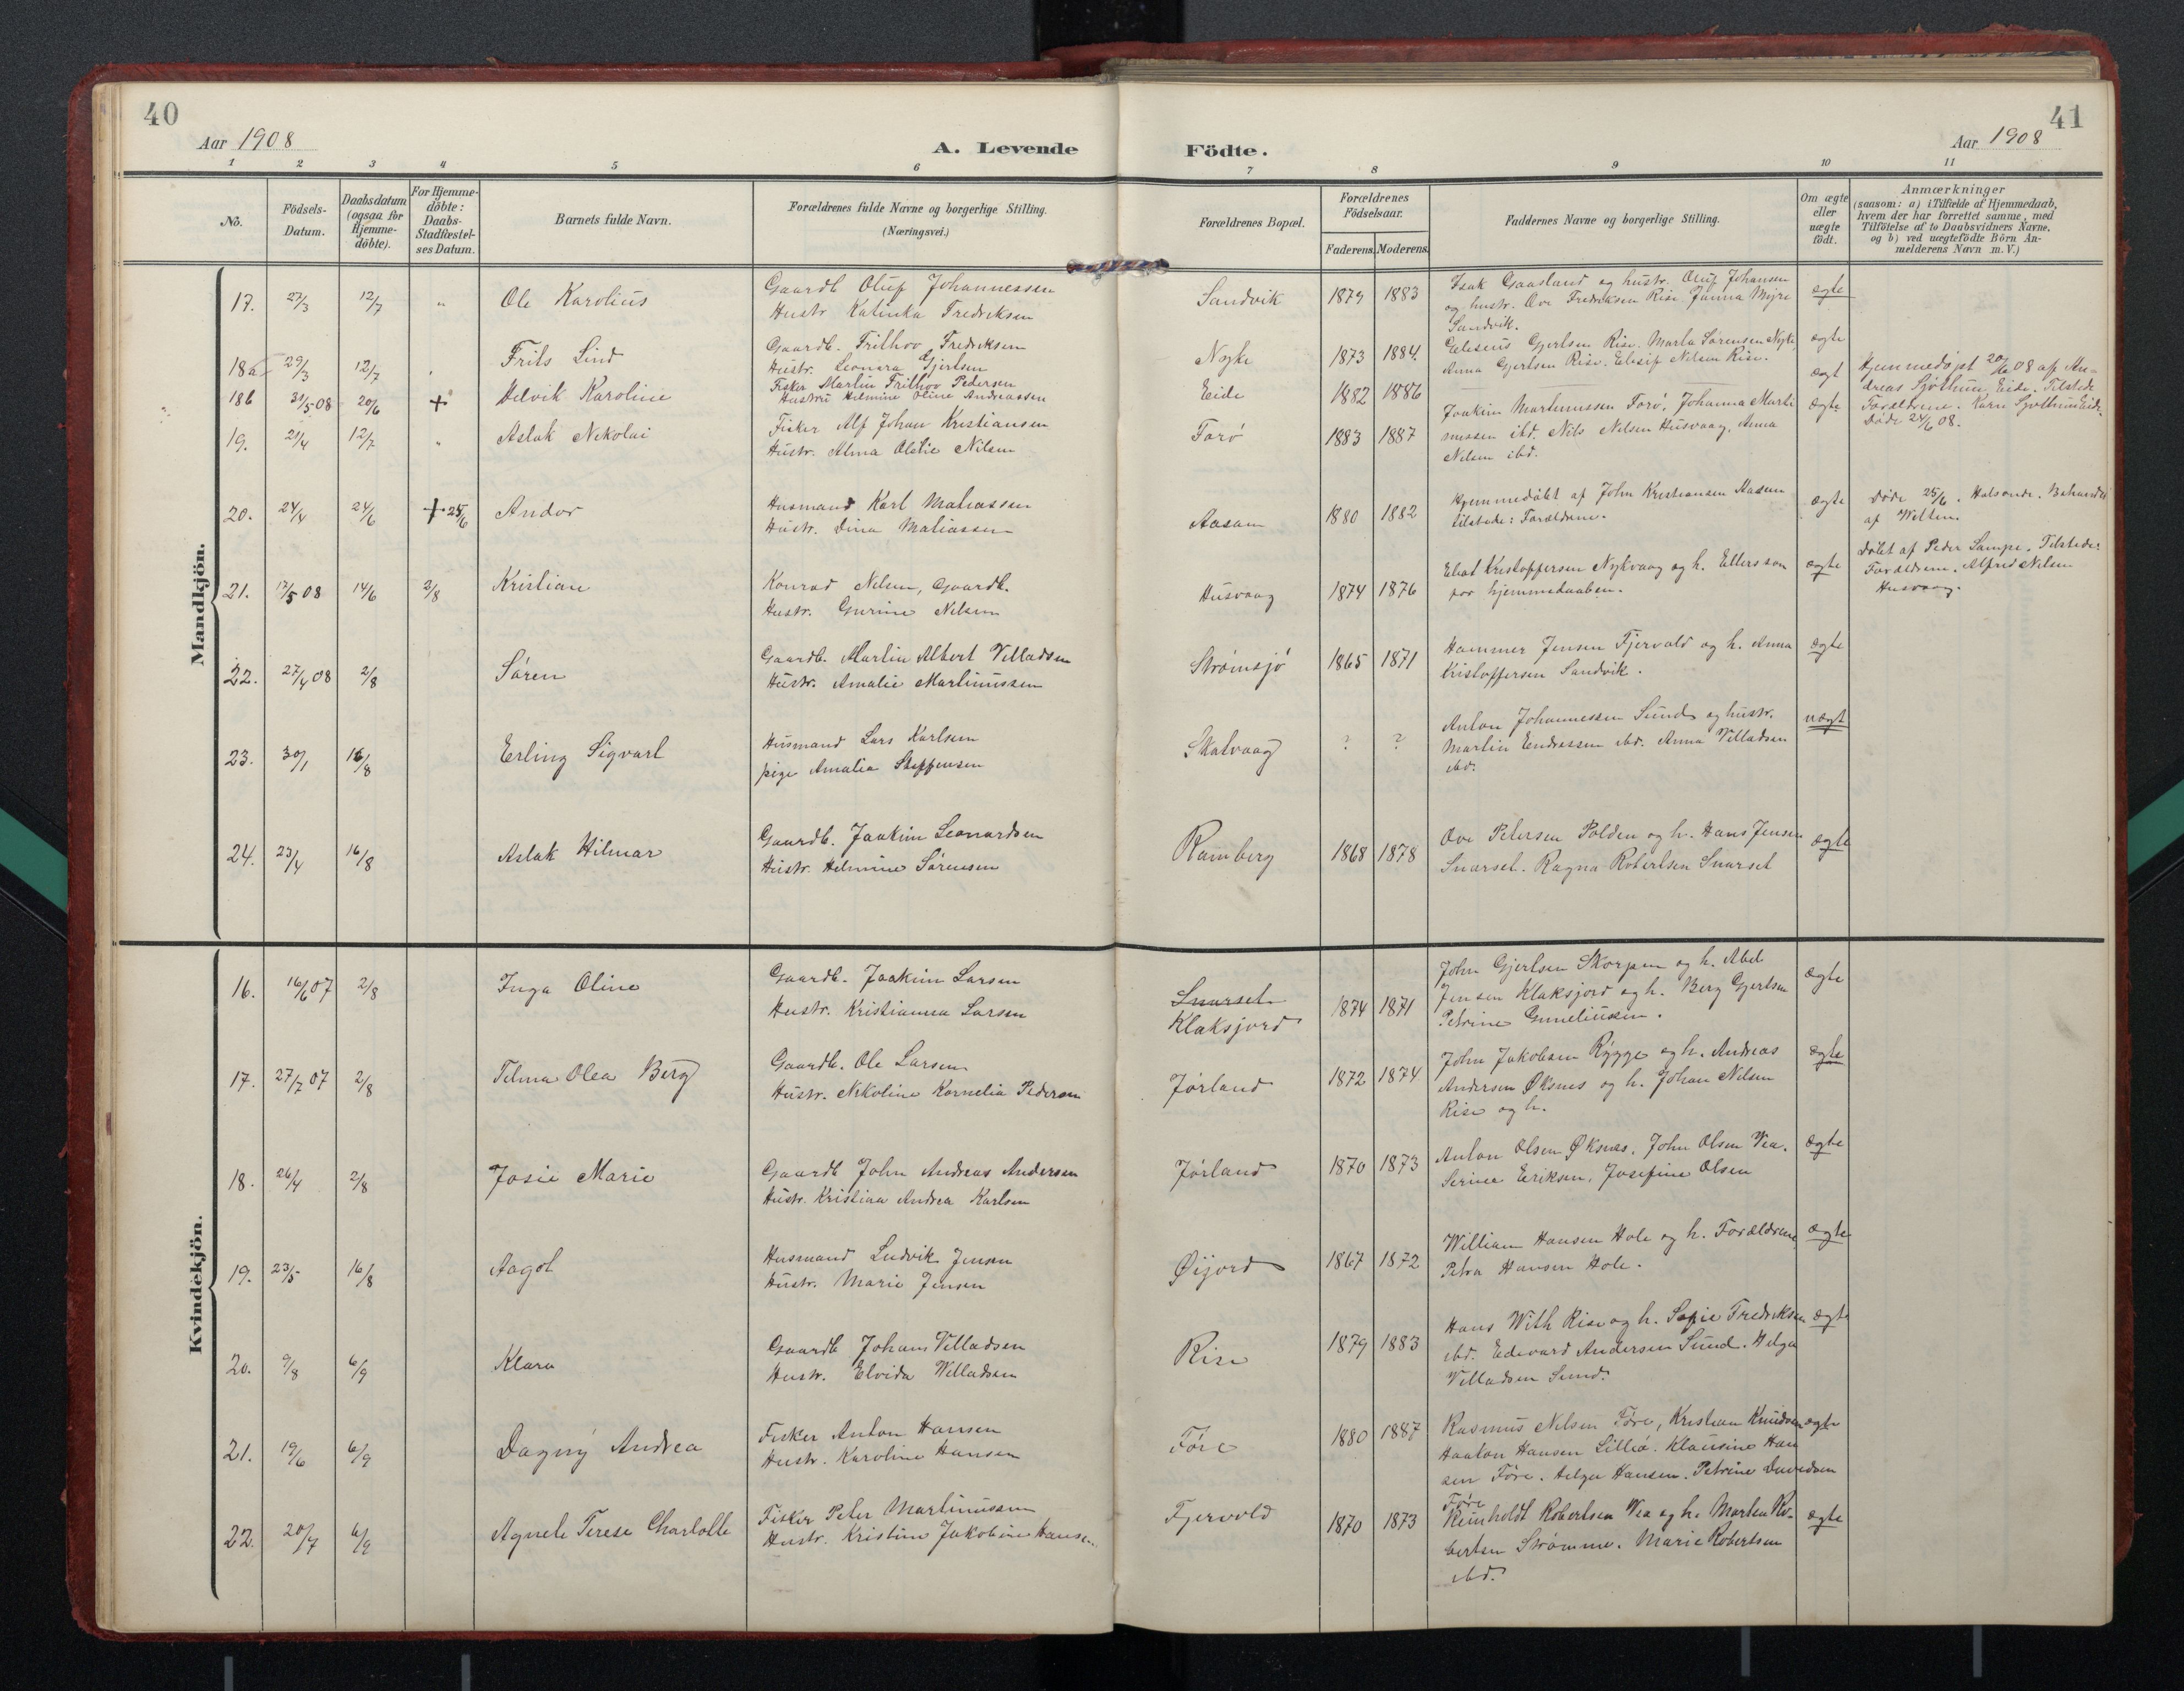 40
Aar 1908
A. Levende
1 2 3 4 5 6
No.
Födsels-Datum.
Daabsdatum (ogsaa for Hjemme-döbte).
For Hjemme-döbte: Daabs-Stadfæstel-ses Datum.
Barnets fulde Navn.
Forældrenes fulde Navne og borgerlige Stilling.
(Næringsvei.)
Mandkjön.
17. 27/3 12/7 " Ole Karolius
Gaardb Oluf Johannessen
Hustr Katinka Fredriksen
18a 29/3 12/7 Frits Lind
Gaardb. Frithov Fredriksen
Hustr. Leonara Gjertsen
18b 31/5 08 20/6 + Helvik Karoline
Fisker Martin Frithov Pedersen
Hustru Helmine Oline Andreassen
19. 21/4 12/7 " Aslak Nikolai
Fisker Alf Johan Kristiansen
Hustr. Alma Olette Nilsen
20. 24/4 24/6 + 25/6 Andor
Husmand Karl Matiassen
Hustr. Dina Matiassen
21. 17/5 08 14/6 2/8 Kristian
Konrad Nilsen, Gaardb.
Hustr. Gurine Nilsen
22. 27/4 08 2/8 Søren
Gaardb. Martin Albert Villadsen
Hustr. Amalie Martinussen
23. 30/1 16/8 Erling Sigvart
Husmand Lars Karlsen
pige Amalia Steffensen
24. 23/4 16/8 Aslak Hilmar
Gaardb. Joakim Leonardsen
Hustr. Helmine Sørensen
Kvindekjön.
16. 16/6 07 2/8 Inga Oline
Gaardb. Joakim Larsen
Hustr. Kristianna Larsen
17. 27/7 07 2/8 Telma Olea Berg
Gaardb. Ole Larsen
Hustr. Nikoline Kornelia Pedersen
18. 26/4 2/8 Josie Marie
Gaardb John Andreas Andersen
Hustr. Kristina Andrea Karlsen
19. 23/5 16/8 Aagot
Husmand Ludvik Jensen
Hustr. Marie Jensen
20. 9/8 6/9 Klara
Gaardb Johan Villadsen
Hustr. Elvida Villadsen
21. 19/6 6/9 Dagny Andrea
Fisker Anton Hansen
Hustr. Karoline Hansen
22. 20/7 6/9 Agnete Terese Charlotte
Fisker Peter Martinussen
Hustr. Kristine Jakobine Hansen
41
Aar 1908
Födte.
7 8 9 10 11
Forældrenes Bopæl.
Forældrenes Födselsaar.
Faderens Moderens
Faddernes Navne og borgerlige Stilling.
Om ægte eller uægte födt.
Anmærkninger
(saasom: a) i Tilfælde af Hjemmedaab,
hvem der har forrettet samme, med
Tilföielse af to Daabsvidners Navne,
og b) ved uægtefödte Börn An-
melderens Navn m. V.)
Sandvik 1879 1883
Isak Gaasland og hustr. Oluf Johansen
og hustr. Ove Fredriksen Rise Janna Myre
Sandvik.
ægte
Nyke 1873 1884.
Eliseus Gjertsen Rise. Marta Sørensen Nyke
Anna Gjertsen Rise. Elesif Nilsen Rise.
ægte
Eide 1882 1886
ægt
Hjemmedøpt 20/6 08 af An-
dreas Sjøthun, Eide. Tilstede
Forældrene. Karn Sjøthun Eide.
Døde 24/6 08.
Forø 1883 1887
Joakim Martinussen Forø, Johanna Marti
nussen ibd. Nils Nilsen Husvaag, Anna
Nilsen ibd.
ægte
Aasam 1880 1882
Hjemmedøbt af John Kristiansen Aasam
tilstede: Forældrene.
ægte
Døde 25/6. Halsonde. Behandlet
af Welten.
Husvaag 1874 1876
Eliot Kristoffersen Nykvaag og h. Ellers som
for hjemmedaaben.
ægte
Døbt af Peder Lampe. Tilstede:
Forældrene. Alfred Nilsen
Husvaag.
Strømsjø 1865 1871
Hammer Jensen Fjervold og h. Anna
Kristoffersen Sandvik.
ægte
Skalvaag ? ?
Anton Johannessen Sund og hustr.
Martin Endressen ibd. Anna Villadsen
ibd.
uægt
Ramberg 1868 1878
Ove Petersen Polden og h. Hans Jensen
Snarset. Ragna Robertsen Snarset
ægte
Snarset
Klaksjord 1874 1871
John Gjertsen Skorpen og h. Abel
Jensen Klaksjord og h. Berg Gjertsen
Petrine Guneliussen.
ægte
Jørland 1872 1874
John Jakobsen Rygge og h. Andreas
Andersen Øksnes og h. Johan Nilsen
Rise og h.
ægte
Jørland 1870 1873
Anton Olsen Øksnes. John Olsen Vea.
Serine Eriksen, Josefine Olsen
ægte
Øijord 1867 1872
William Hansen Hole og h. Forældrene,
Petra Hansen Hole.
ægte
Rise 1879 1883
Hans With Rise og h. Sofie Fredriksen
ibd. Edevard Andersen Sund. Helga
Villadsen Sund.
ægte
Føre 1880 1887
Rasmus Nilsen Føre, Kristian Knudsen
Haakon Hansen Lilliø. Klausine Han
sen Føre. Helga Hansen. Petrine Davidsen
Føre
ægte
Fjervold 1870 1873
Reinholdt Robertsen Vea og h. Marten Ro-
bertsen Strømme. Marie Robertsen
ibd.
ægte